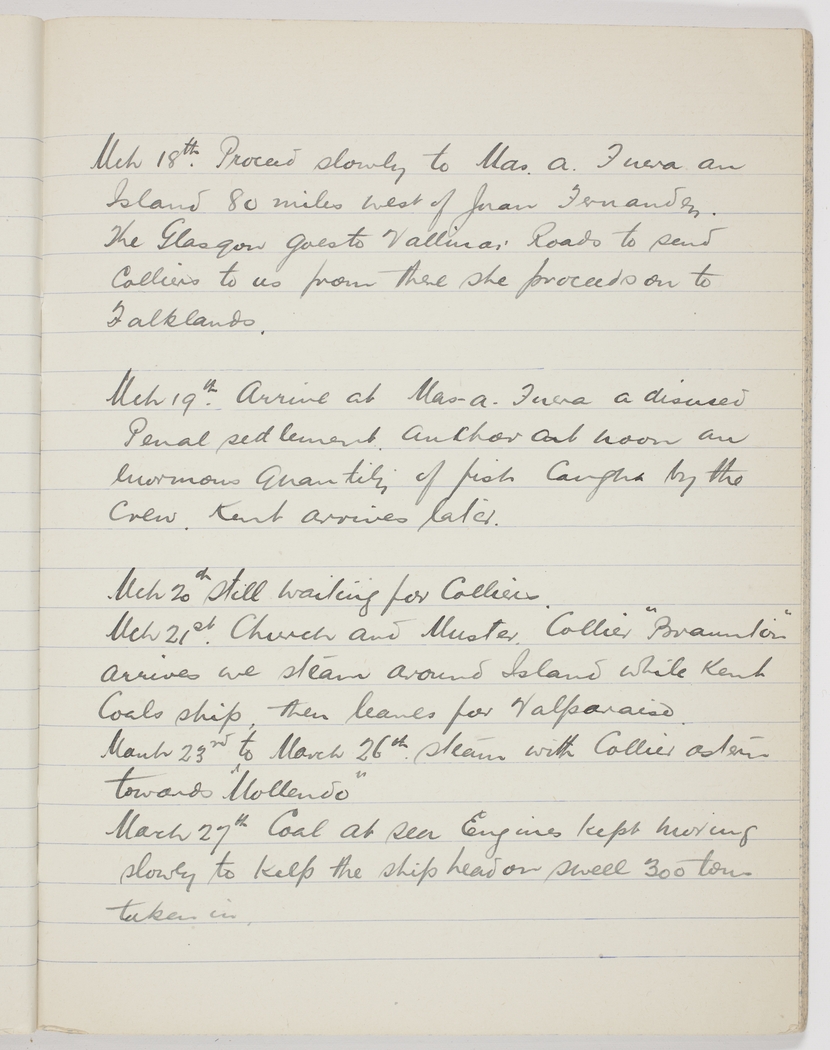 Mch 18th. Proceed slowly to Mas. a. Fuera an
Island 80 miles west of Juan Fernandez.
The Glasgow goes to Vallinar Roads to send
Colliers to us from there she proceeds on to
Falklands.
Mch 19th. Arrive at Mas-a. Fuera a disused
Penal settlement. Anchor at noon an
enormous quantity of fish caught by the
Crew. Kent arrives later.
Mch 20th still waiting for Colliers.
Mch 21st. Church and Muster. Collier "Braunton"
arrives we steam around Island while Kent
Coals ship, then leaves for Valparaiso.
March 23rd to March 26th. steam with Collier astern
towards "Mollendo"
March 27th Coal at sea Engines kept moving
slowly to keep the ship head on swell 300 tons
taken in.